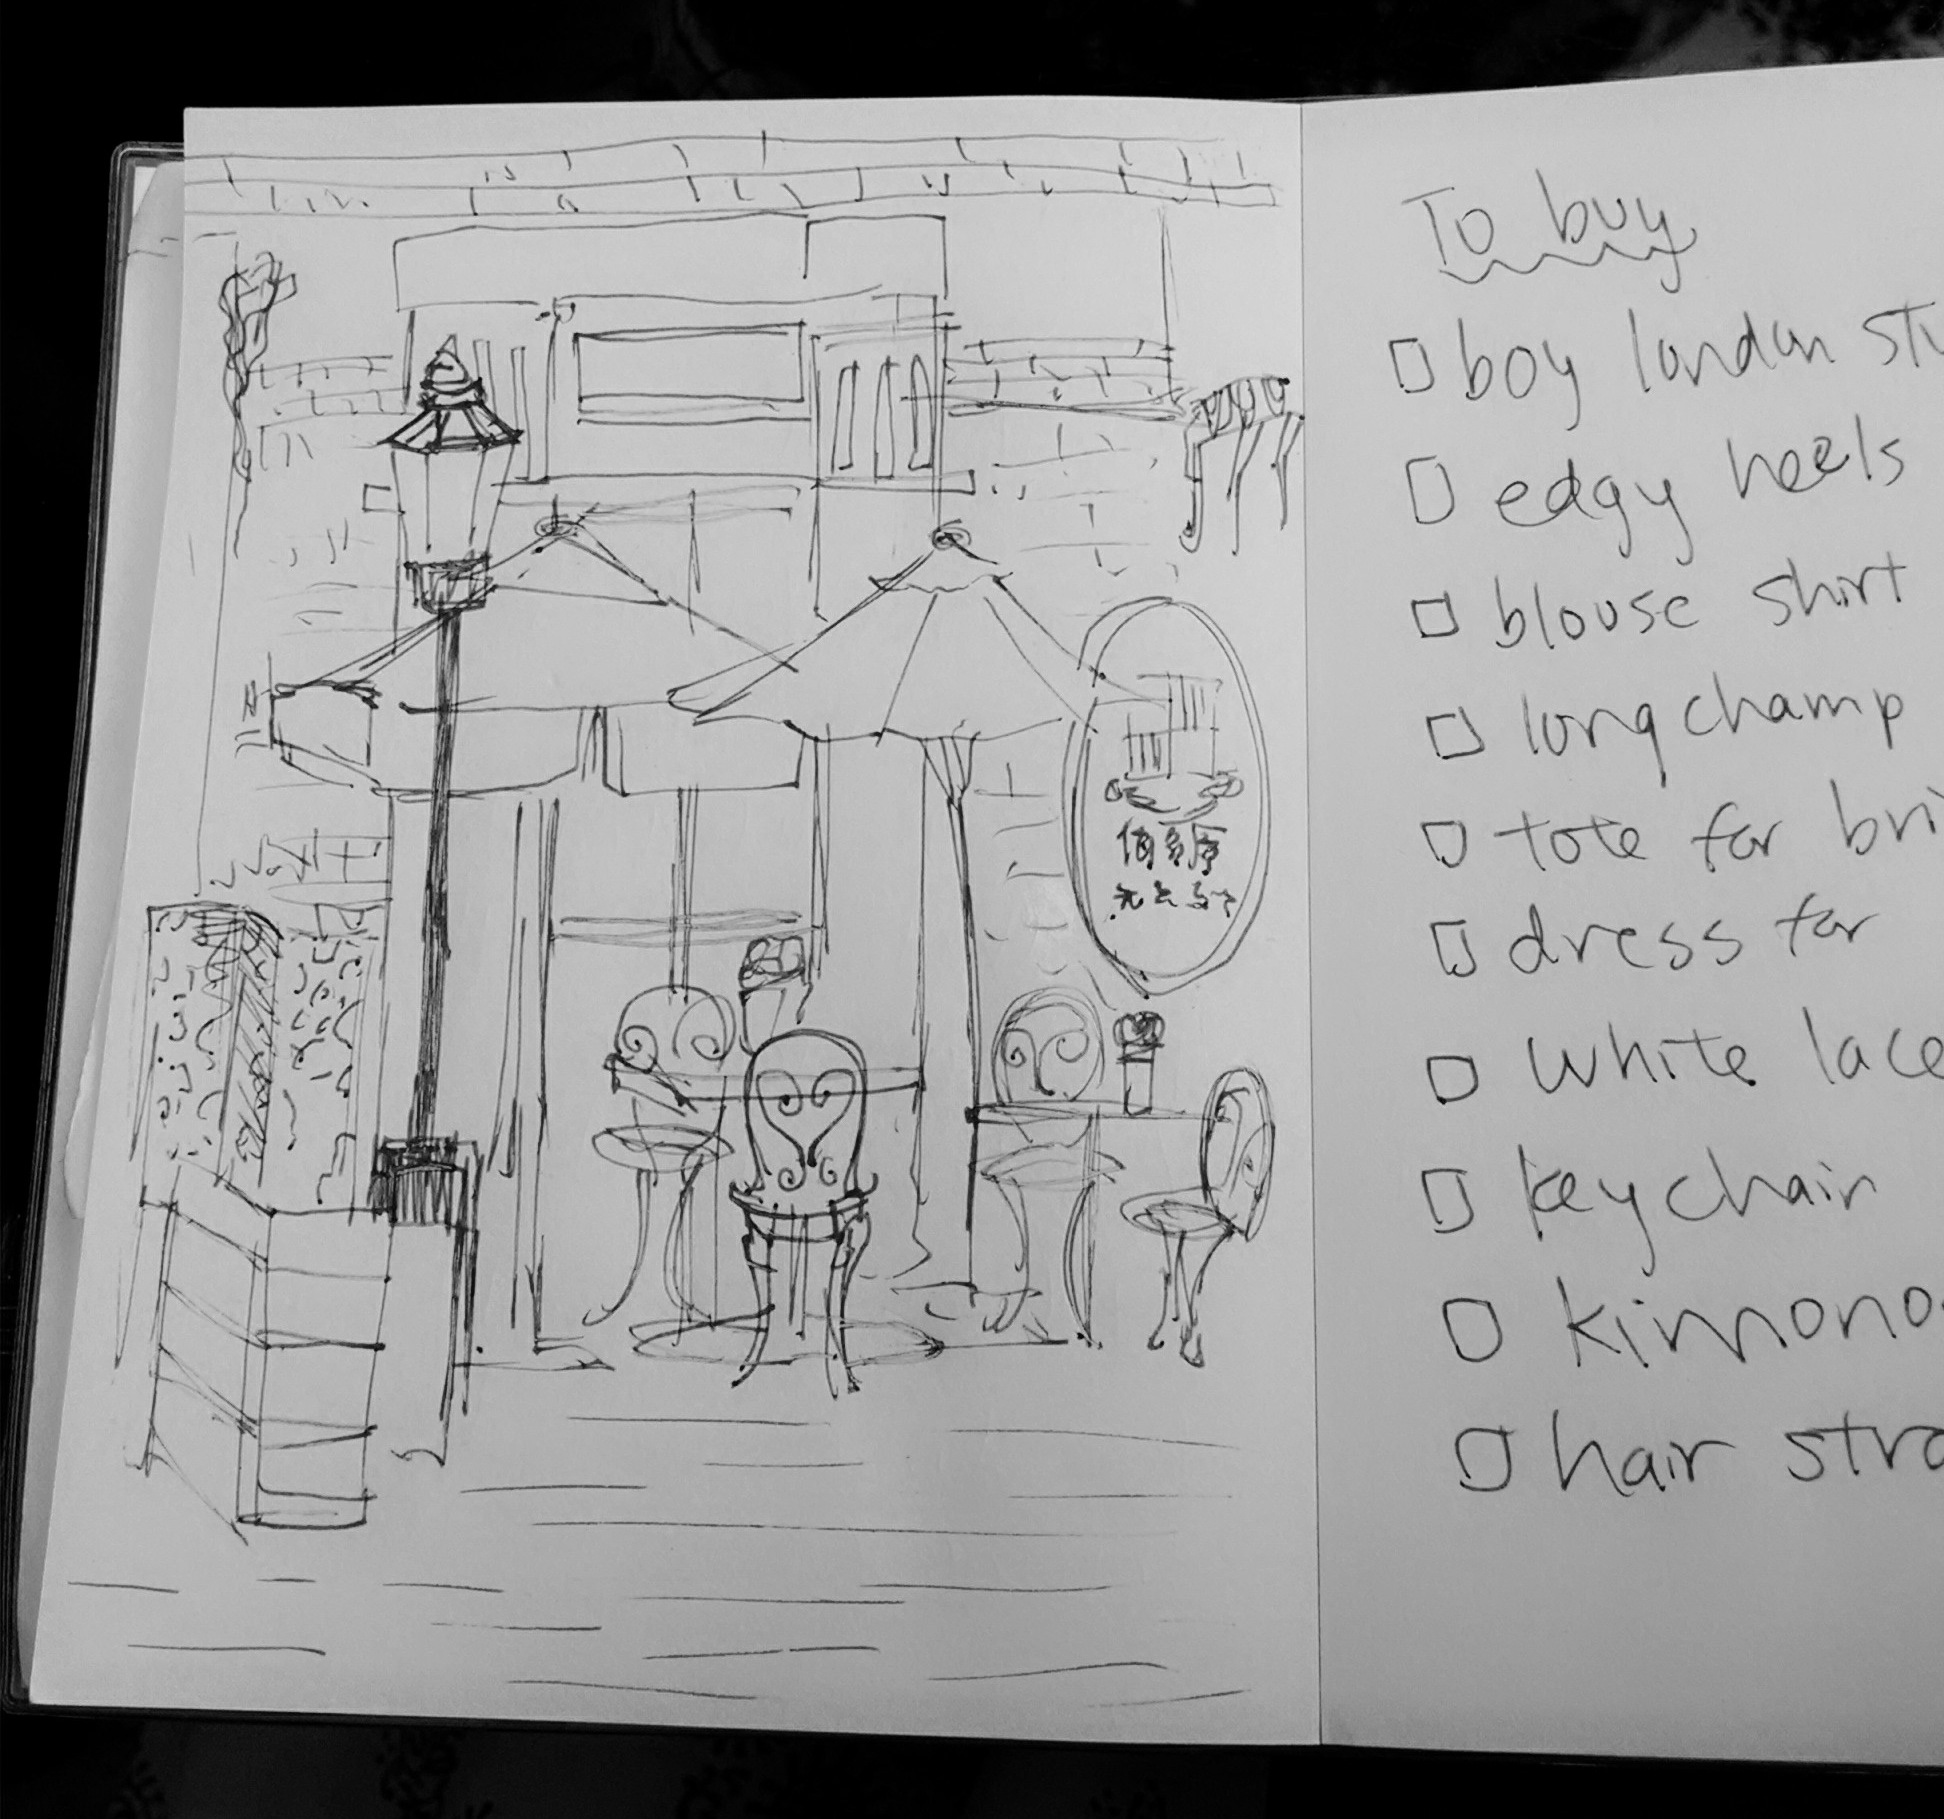 To buy
boy london
edgy heels
blouse shirt
longchamp
tote for
dress for
white lace
keychain
kimono
hair